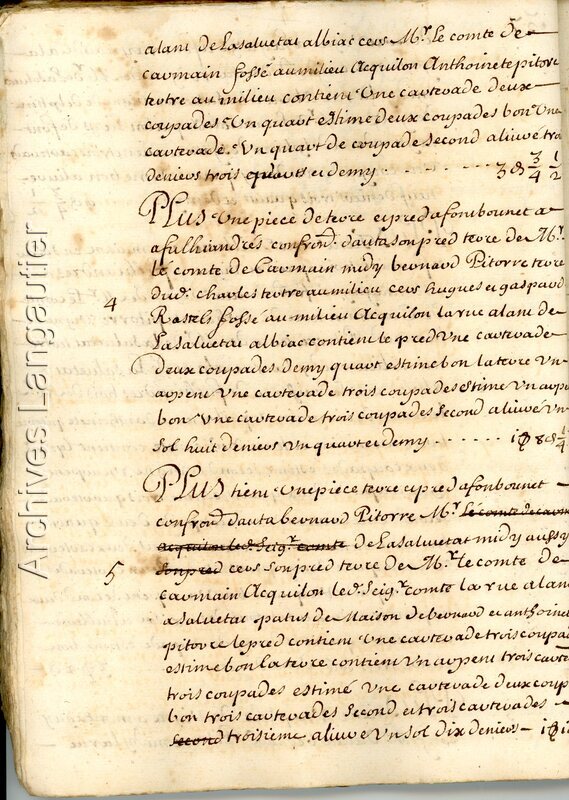 alant de Lasaluetat albiac cers Mr. le comte de
carmain fossé au milieu Acquilon Anthoinete pitorre
tertre au milieu contient Une carterade deux
coupades Un quart estime deux coupades bon Une
carterade Un quart de coupade second aliuré trois
deniers trois quarts et demy . . . . . . 3 d 3/4 1/2
PLus Une piece de terre et pred a fonbounet
a fulhiandres confrond. dauta son pred tere de Mr.
le comte de Carmain midy bernard Pitorre terre
dud. charles tertre au milieu cers hugues et gaspard
4
Rastels fossé au milieu Acquilon la rue alant de
Lasaluetat albiac contient le pred Une carterade
deux coupades demy quart estime bon la terre Un
arpent Une carterade trois coupades estime Un arpent
bon Une carterade trois coupades second aliuré Un
sol huit deniers Un quart et demy . . . . . . 1 s 8 d 1/4
PLus tient Une piece terre et pred a fonbounet
confrond. dauta bernard Pitorre Mr. le comte de carm
acquilon led. Seigr. comte de Lasaluetat midy aussy
son pred cers son pred terre de Mr. le comte de
5
carmain Acquilon led. Seigr. comte la rue alant
a saluetat patus de Maison de bernard et anthoinete
pitorre le pred contient Une carterade trois coupades
estime bon la terre contient Un arpent trois carterades
trois coupades estimé Une carterade deux coup
bon trois carterades second et trois carterades
second troisieme aliuré Un sol dix deniers
Archives Langautier